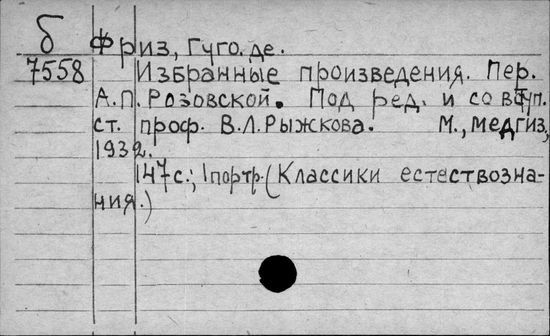 б Фриз, Гуго. де.
7558 Избранные произведения. Пер.
А.П. Розовской. Под ред. и со вступ.
ст. проф. В.Л. Рыжкова. М., Медгиз,
1932.
147с.; 1 портр. (Классики естествозна-
ния.)